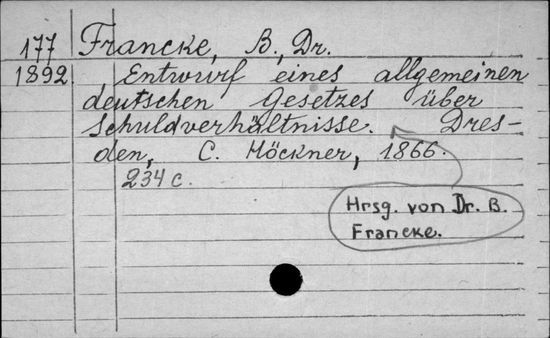 177 Francke, B., Dr.
1892 Entwurf eines allgemeinen
deutschen Gesetzes über
Schuldverhältnisse. Dres-
den, C. Höckner, 1866.
234 c.
Hrsg. von Dr. B.
Francke.